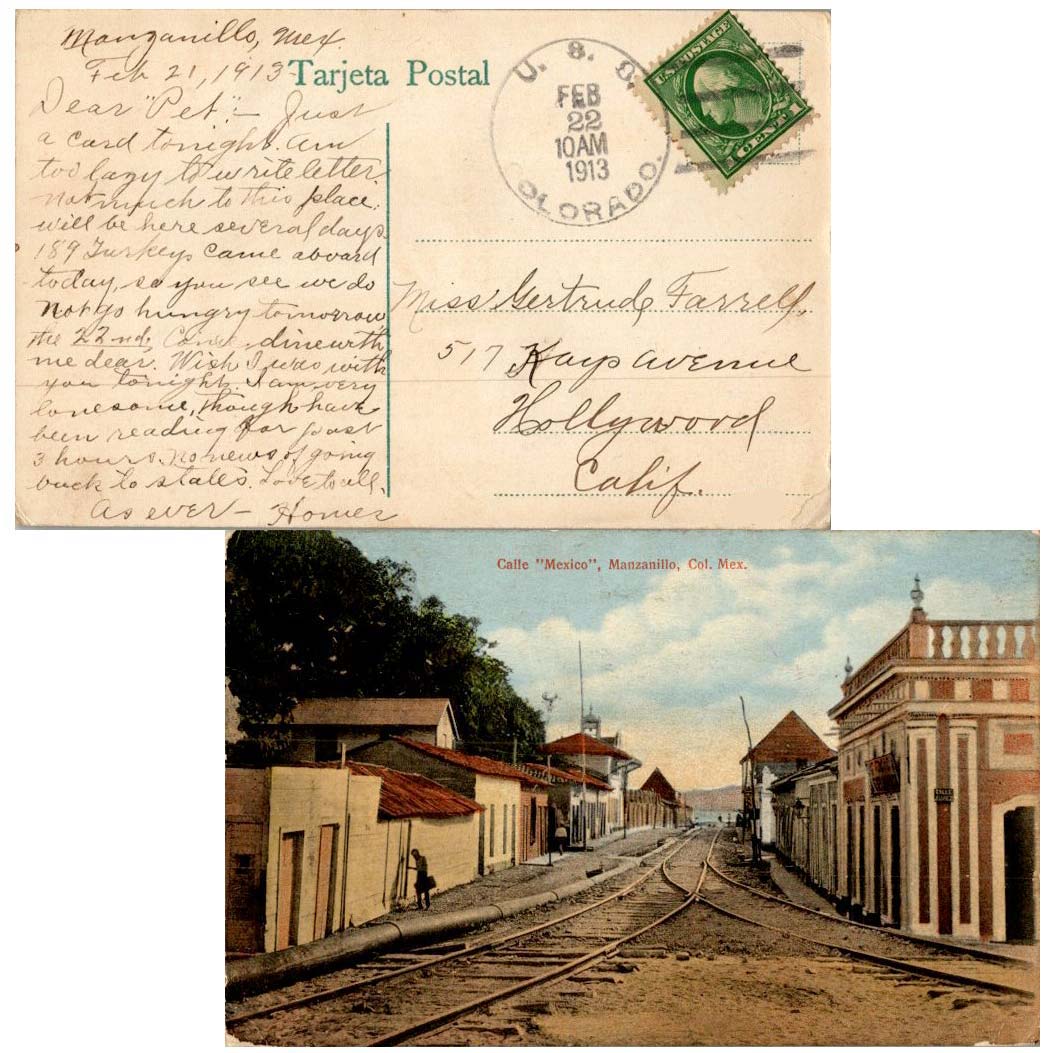 Manzanillo, Mex.
Feb 21, 1913
Tarjeta Postal
Dear "Pet":- Just
a card tonight. Am
too lazy to write letter.
Not much to this place;
will be here several days.
189 Turkeys came aboard
today, so you see we do
not go hungry tomorrow
the 22nd, Come dine with
me dear. Wish I was with
you tonight. I am very
lonesome, though have
been reading for past
3 hours. No news of going
back to states. Love to all,
As ever - Homer
U. S. S.
FEB
22
10AM
1913
COLORADO.
U.S. POSTAGE
1 CENT 1
Miss Gertrude Farrell,
517 Kays Avenue
Hollywood
Calif.
Calle "Mexico", Manzanillo, Col. Mex.
CALLE
JUAREZ